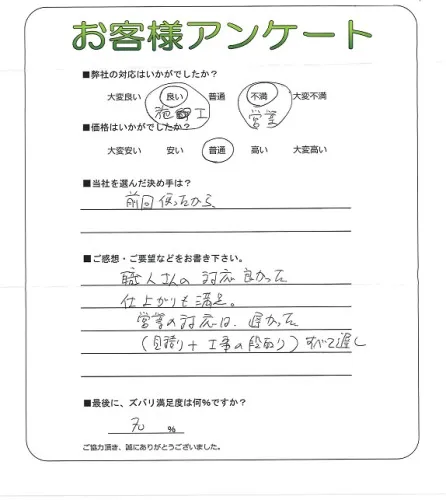 お客様アンケート
■弊社の対応はいかがでしたか?
大変良い 良い 普通 不満 大変不満
施工 営業
■価格はいかがでしたか?
大変安い 安い 普通 高い 大変高い
■当社を選んだ決め手は?
前回使ったから
■ご感想・ご要望などをお書き下さい。
職人さんの対応良かった
仕上がりも満足。
営業の対応は、遅かった
(見積り+工事の段取り)すべて遅し
■最後に、ズバリ満足度は何%ですか?
70 %
ご協力頂き、誠にありがとうございました。